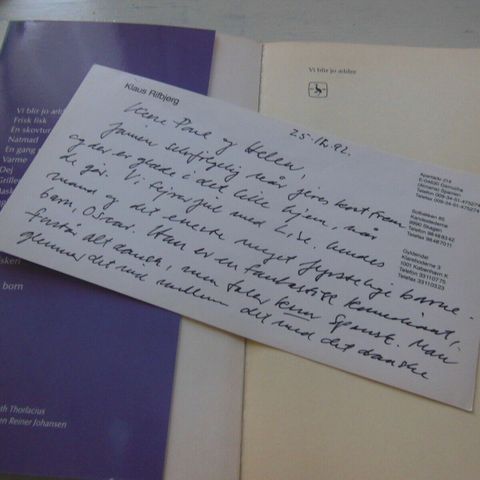 Vi blir jo ældre
Frisk fisk
En skovtur
Natmad
En gang
Varme
Dej
isken
born
Thorlacius
Reiner Johansen
Vi blir jo ældre
Klaus Rifbjerg
25.12.92.
Kære Poul og Helen,
jamen selvfølgelig når jeres kort frem
og der er glæde i det lille hjem, når
de gør. Vi fejrer jul med Lise, hendes
mand og det eneste meget fyrstelige barne-
barn, Oscar. Han er en fantastisk komediant,
forstår alt dansk, men taler kun spansk. Man
glemmer det ind imellem det med det danske
Apartado 214
E-04630 Garrucha
(Almeria) Spanien
Telefon 009-34-51-475274
Telefax 009-34-51-475274
Kandestederne
9990 Skagen
Telefon
Telefax 98487011
Gyldendal
Klareboderne 3
1001 København K
Telefon 33110775
Telefax 33110323